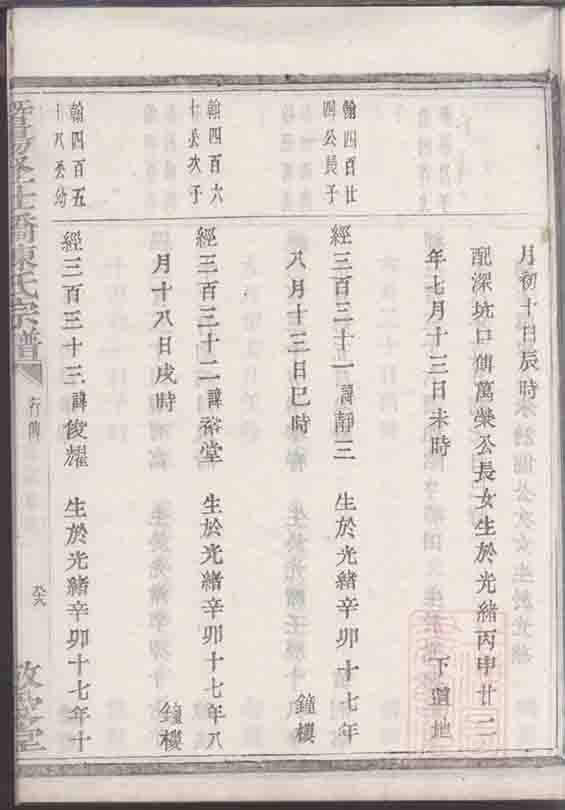 月初十日辰時
配深坑口傅萬榮公長女生於光緒丙申廿二
年七月十三日未時
下道地
翰四百廿
四公長子
經三百三十一諱靜三 生於光緒辛卯十七年
八月十三日巳時
鐘樓
翰四百六
十公次子
經三百三十二諱裕堂 生於光緒辛卯十七年八
月十八日戌時
鐘樓
翰四百五
十八公幼
經三百三十三諱俊耀 生於光緒辛卯十七年十
橋陳氏宗譜
行傳